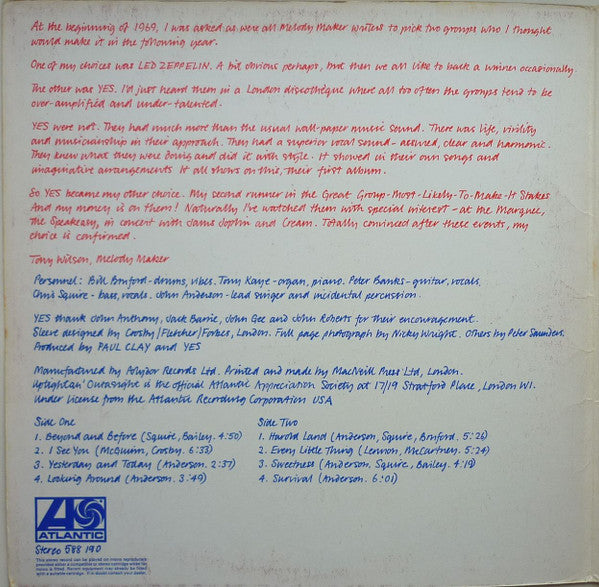 At the beginning of 1969, I was asked as were all Melody Maker writers to pick two groups who I thought
would make it in the following year.
One of my choices was LED ZEPPELIN. A bit obvious perhaps, but then we all like to back a winner occasionally.
The other was YES. I'd just heard them in a London discotheque where all too often the groups tend to be
over-amplified and under-talented.
YES were not. They had much more than the usual wall-paper music sound. There was life, virility
and musicianship in their approach. They had a superior vocal sound - assured, clear and harmonic.
They knew what they were doing and did it with style. It showed in their own songs and
imaginative arrangements It all shows on this, their first album.
So YES became my other choice. My second runner in the Great Group-Most-Likely-To-Make-It Stakes
And my money is on them! Naturally I've watched them with special interest - at the Marquee,
the Speakeasy, in concert with Janis Joplin and Cream. Totally convinced after these events, my
choice is confirmed.
Tony Wilson, Melody Maker
Personnel: Bill Bruford - drums, vibes. Tony Kaye - organ, piano. Peter Banks - guitar, vocals.
Chris Squire - bass, vocals. John Anderson - lead singer and incidental percussion.
YES thank John Anthony, Jack Barrie, John Gee and John Roberts for their encouragement.
Sleeve designed by Crosby/Fletcher/Forbes, London. Full page photograph by Nicky Wright. Others by Peter Saunders.
Produced by PAUL CLAY and YES
Manufactured by Polydor Records Ltd. Printed and made by MacNeill Press Ltd, London.
Uptightan' Outasight is the official Atlantic Appreciation Society at 17/19 Stratford Place, London W1.
Under license from the Atlantic Recording Corporation USA
Side One
1. Beyond and Before (Squire, Bailey. 4:50)
2. I See You (McGuinn, Crosby. 6:33)
3. Yesterday and Today (Anderson. 2:37)
4. Looking Around (Anderson. 3:49)
Side Two
1. Harold Land (Anderson, Squire, Bruford. 5:26)
2. Every Little Thing (Lennon, McCartney. 5:24)
3. Sweetness (Anderson, Squire, Bailey. 4:19)
4. Survival (Anderson. 6:01)
ATLANTIC
Stereo 588 190
This stereo record can be played on mono reproducers
provided either a compatible or stereo cartridge wired for
mono is fitted. Recent equipment may already be fitted
with a suitable cartridge. If in doubt consult your dealer.